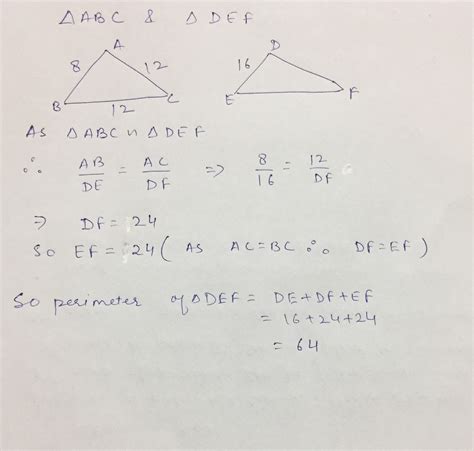 △ ABC & △ DEF
A
8
12
B
C
12
D
16
E
F
As △ABC ∼ △DEF
∴ AB/DE = AC/DF ⇒ 8/16 = 12/DF
⇒ DF = 24
So EF = 24 ( As AC = BC ∴ DF = EF )
So perimeter of △DEF = DE + DF + EF
= 16 + 24 + 24
= 64